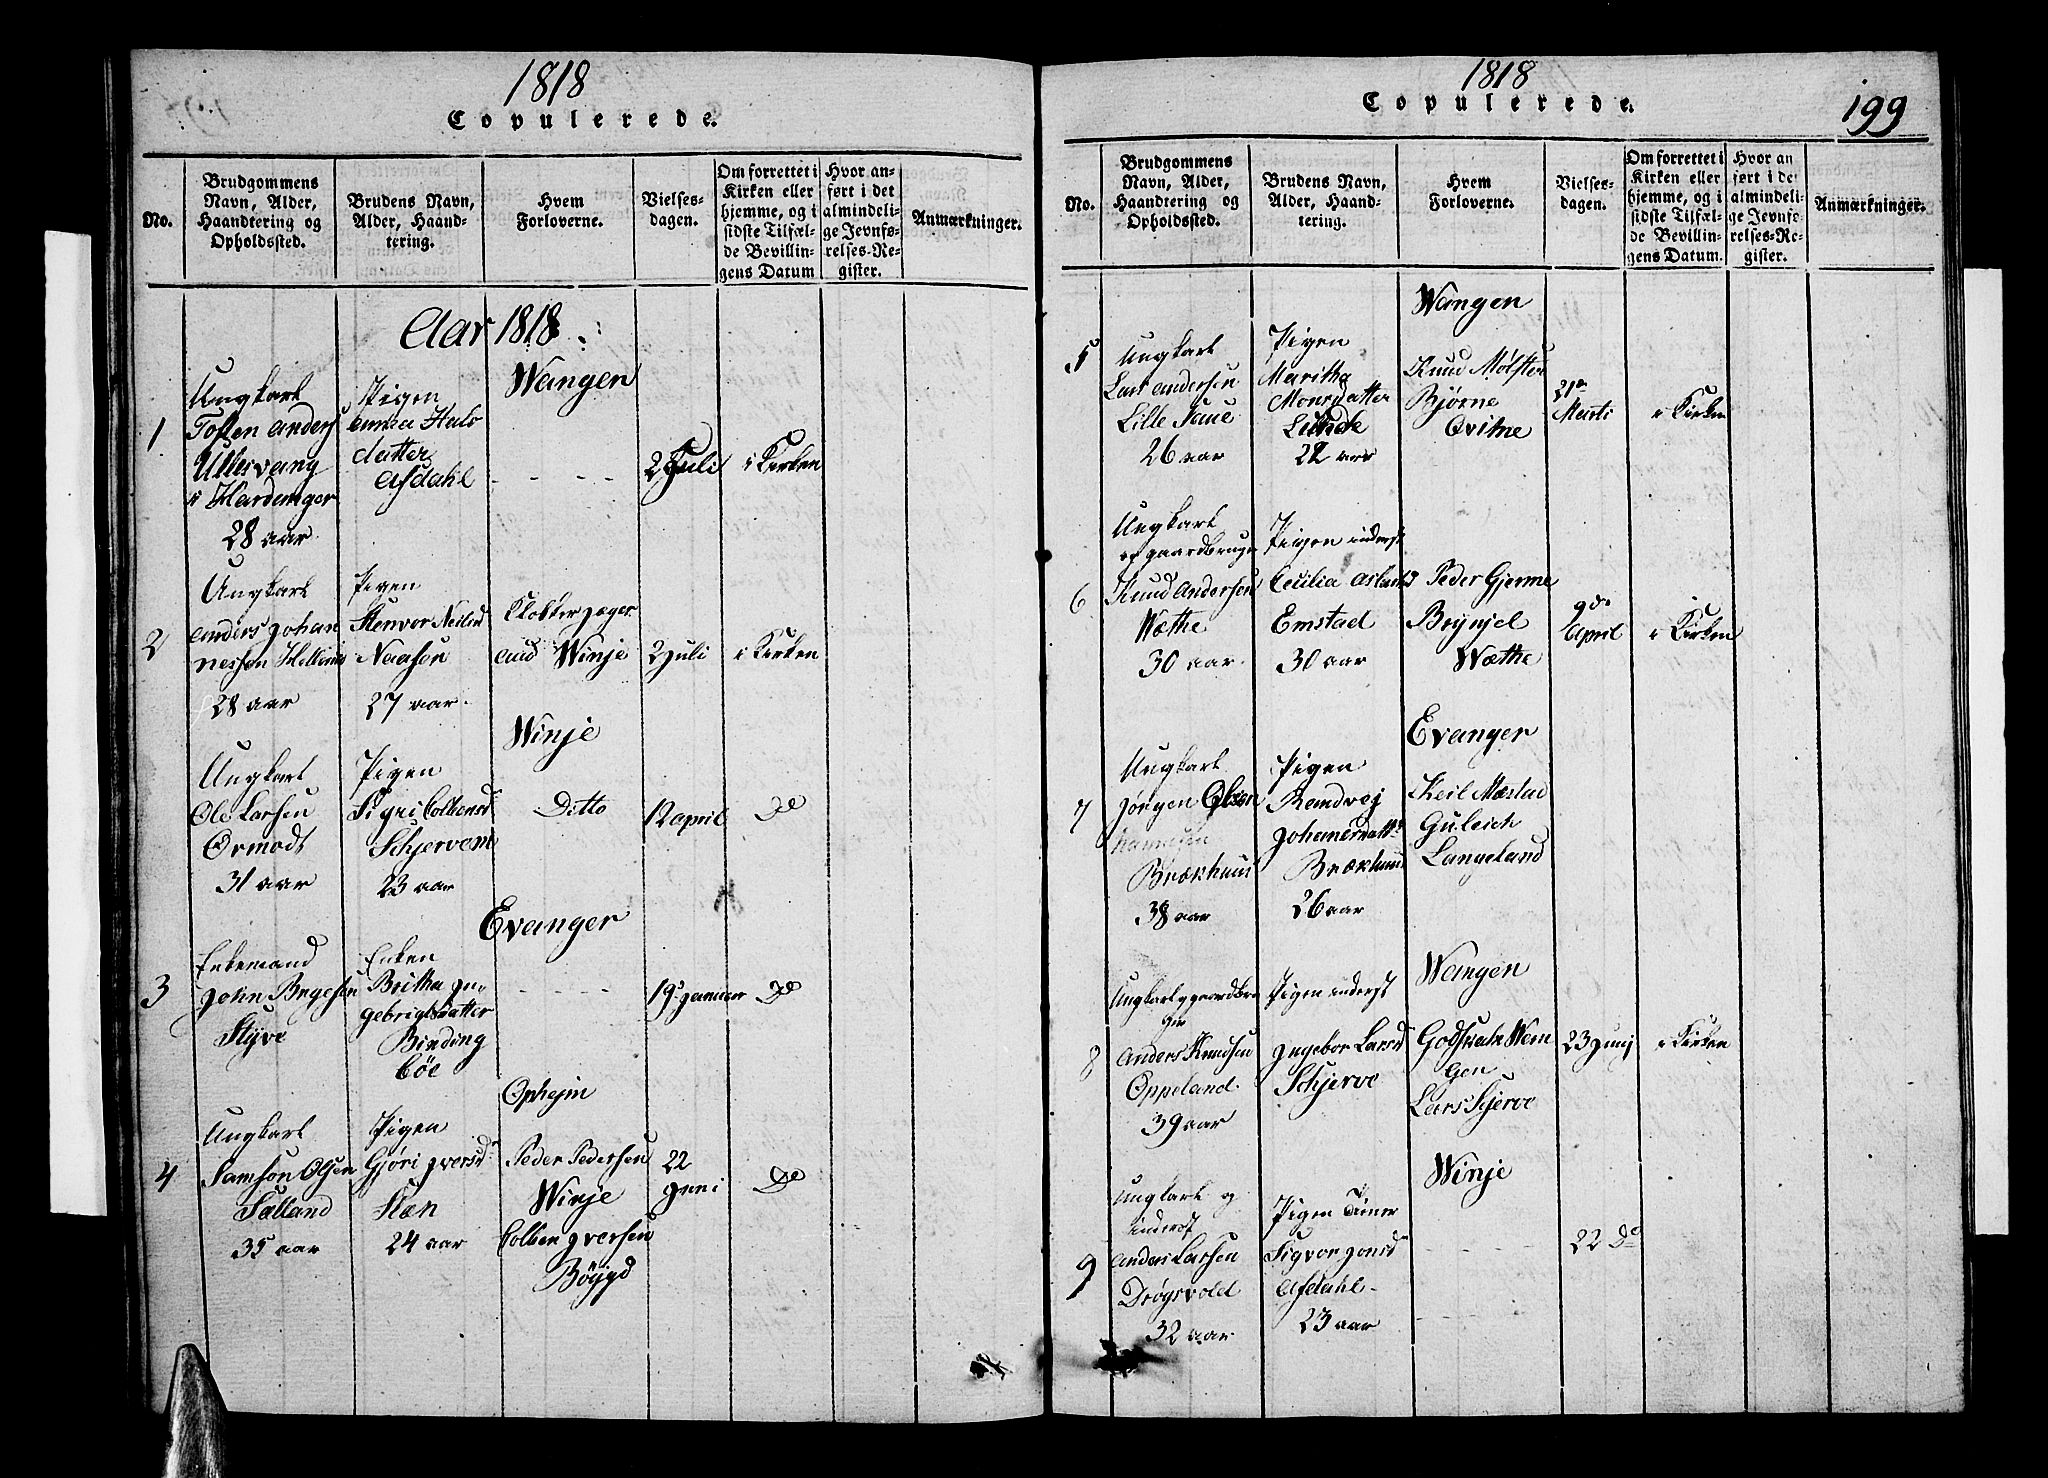 1818
Copulerede.
No.
Brudgommens
Navn, Alder,
Haandtering og
Opholdssted.
Brudens Navn,
Alder, Haand-
tering.
Hvem
Forloverne.
Vielses-
dagen.
Om forrettet i
Kirken eller
hjemme, og i
sidste Tilfæl-
de Bevillin-
gens Datum
Hvor an-
ført i det
almindeli-
ge Jevnfø-
relses-Re-
gister.
Anmærkninger.
Aar 1818
Wangen
1
Ungkarl
Tosten anders
Ullesvang
i Hardanger
28 aar
Pigen
anna
datter
Afdahl
2 Juli
i Kirken
2
Ungkarl
anders Johan
nessen
28 aar
Pigen
Stenvor Neilsd
Naasen
27 aar
Klokker
aud Winje
2 Juli
i Kirken
Winje
Ungkarl
Ole Larsen
Ormodt
31 aar
Pigen
Sigri Colbensd
Schjervem
23 aar
Ditto
12 april
Do
Evanger
3
Enkemand
John Brygesen
Styve
Enken
Britha In-
gebrigtsdatter
Binding
bøe
19 Januar
Do
Ophejm
4
Ungkarl
Samson Olsen
Sælland
35 aar
Pigen
Gjøri Iversd
Slæn
24 aar
Peder Pedersen
Winje
Colben Iversen
Bøygd
22
Juni
Do
1818
Copulerede.
199
No.
Brudgommens
Navn, Alder,
Haandtering og
Opholdssted.
Brudens Navn,
Alder, Haand-
tering.
Hvem
Forloverne.
Vielses-
dagen.
Om forrettet i
Kirken eller
hjemme, og i
sidste Tilfæl-
de Bevillin-
gens Datum.
Hvor an
ført i de
almindeli-
ge Jevnfø-
relses-Re-
gister.
Anmærkninger.
Wangen
5
Ungkarl
Lars andersen
Lille Saue
26 aar
Pigen
Maritha
Monsdatter
Lunde
22 aar
Knud Mølster
Bjørne
Qvitne
21de
Marti
i Kirken
6
Ungkarl
og gaardbruger
Knud Andersen
Wæthe
30 aar
Pigen inderst
Cecilia Aslaksd
Emstad
30 aar
Peder Gjerme
Brynjel
Wæthe
9de
April
i Kirken
Evanger
7
Ungkarl
Jørgen Olsen
Brækhuus
38 aar
Pigen
Randvej
Johanesdatter
Brækhuus
26 aar
Keil Mæstad
Guleich
Langeland
Wangen
8
Ungkarl og gaardbru
ger
Anders Knudsen
Oppeland
39 aar
Pigen inderst
Ingebor Larsd
Schjerve
Godskalk Wem
Gen
Lars Skjerve
23 Junij
i Kirken
Winje
9
Ungkarl og
inderst
Anders Larsen
Drøgsvold
32 aar
Pigen Tiener
Sigvor Jonsd
Afdahl
23 aar
22 Do